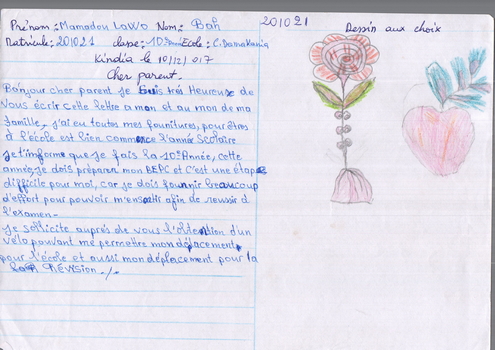 Prénom : Mamadou Lawo Nom : Bah
Matricule : 201021 classe : 10ème Ecole : C. Damakania
Kindia le 10/12/017
Cher parent.
Bonjour cher parent je suis très Heureux de
Vous écrir cette lettre a mon et au mon de ma
famille, j'ai eu toutes mes founitures, pour êtres
à l'école est bien commence l'année scolaire
je t'informe que je fais la 10e Année, cette
année je dois préparer mon BEPC et C'est une étape
difficile pour moi, car je dois fournir beaucoup
d'effort pour pouvoir m'ensortir afin de reussir à
l'examen.
Je sollicite auprès de vous l'obtention d'un
vélo pouvant me permettre mon déplacement
pour l'école et aussi mon déplacement pour la
RÉVISION./.
201021
Dessin aux choix